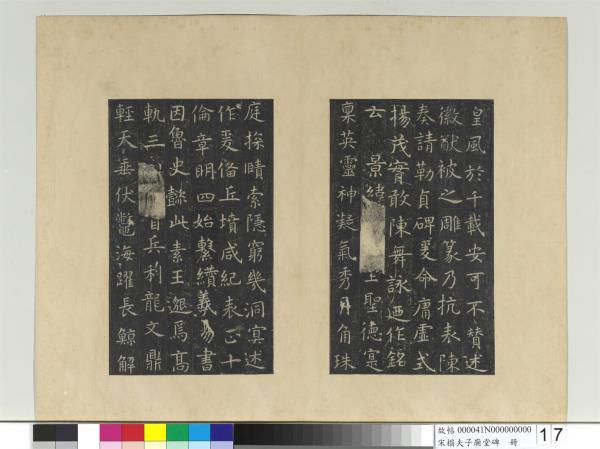 皇風於千載安可不贊述
徽猷被之雕篆乃抗表陳
奏請勒貞碑爰命庸虛式
揚茂實敢陳舞詠迺作銘
云 景緯 聖德寔
稟英靈神凝氣秀月角珠
庭探賾索隱窮幾洞冥述
作爰俻丘墳咸紀表正十
倫章明四始繫纘羲易書
因魯史懿此素王邈焉高
軌三 首兵利龍文鼎
輕天垂伏鼈海躍長鯨解
故帖 000041N000000000
宋搨夫子廟堂碑 冊
17